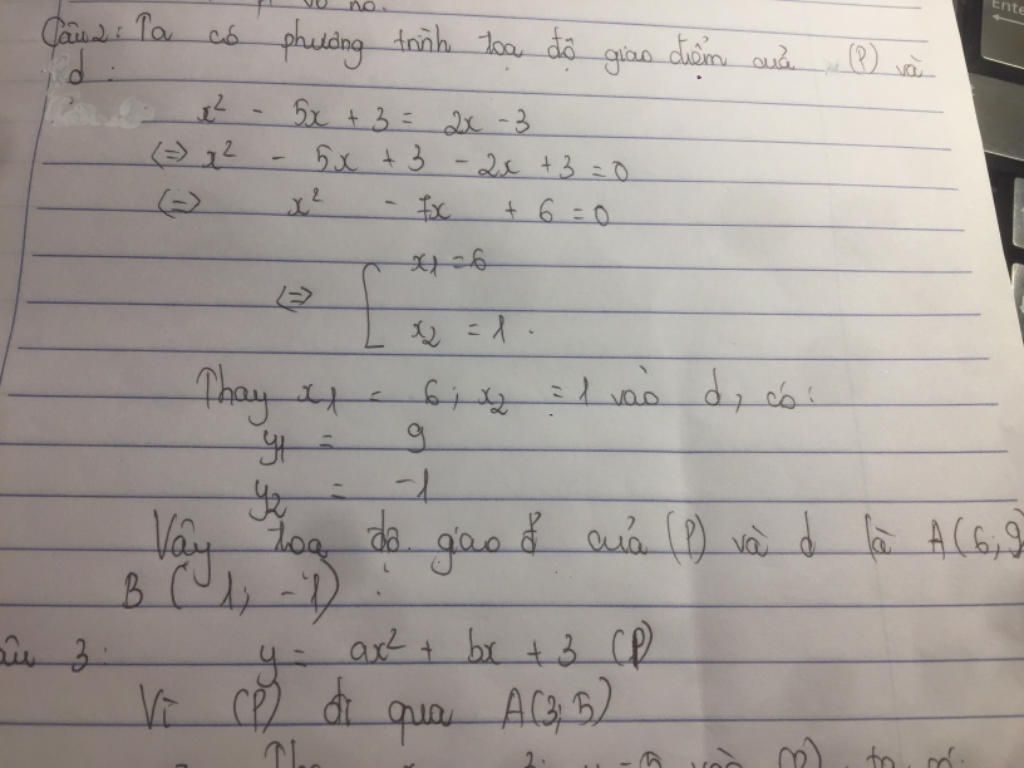 Câu 2: Ta có phương trình toạ độ giao điểm của (P) và
d :
x² - 5x + 3 = 2x - 3
<=> x² - 5x + 3 - 2x + 3 = 0
<=> x² - 7x + 6 = 0
x1 = 6
<=> [
x2 = 1.
Thay x1 = 6; x2 = 1 vào d, có:
y1 = 9
y2 = -1
Vậy toạ độ giao đ' của (P) và d là A(6; 9)
B (1; -1) .
âu 3: y = ax² + bx + 3 (P)
Vì (P) đi qua A(3; 5)